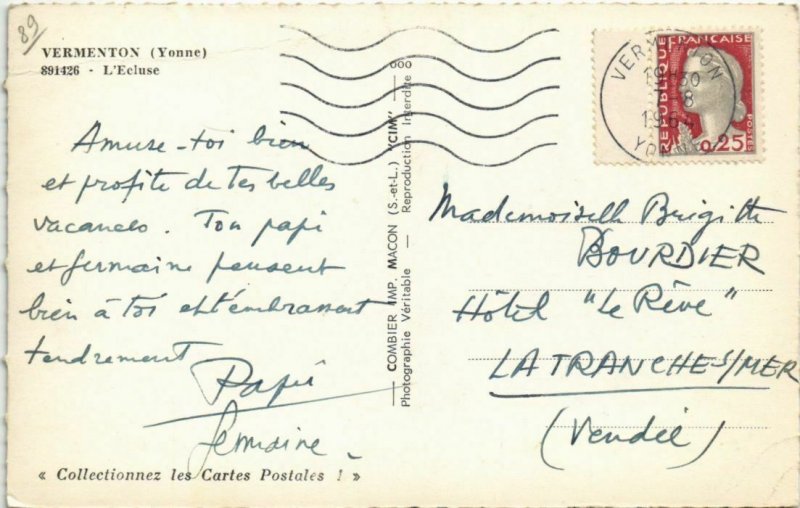 89
VERMENTON (Yonne)
891426 - L'Ecluse
Amuse-toi bien
et profite de tes belles
vacances. Ton papi
et germaine pensent
bien à toi et t'embrassent
tendrement
Papi
Germaine
« Collectionnez les Cartes Postales ! »
COMBIER IMP. MACON (S.-et-L.) "CIM"
Photographie Véritable — Reproduction Interdite
REPUBLIQUE FRANÇAISE
POSTES
0,25
VERMENTON
YONNE
Mademoiselle Brigitte
BOURDIER
Hôtel "Le Rêve"
LA TRANCHE S/MER
(Vendée)